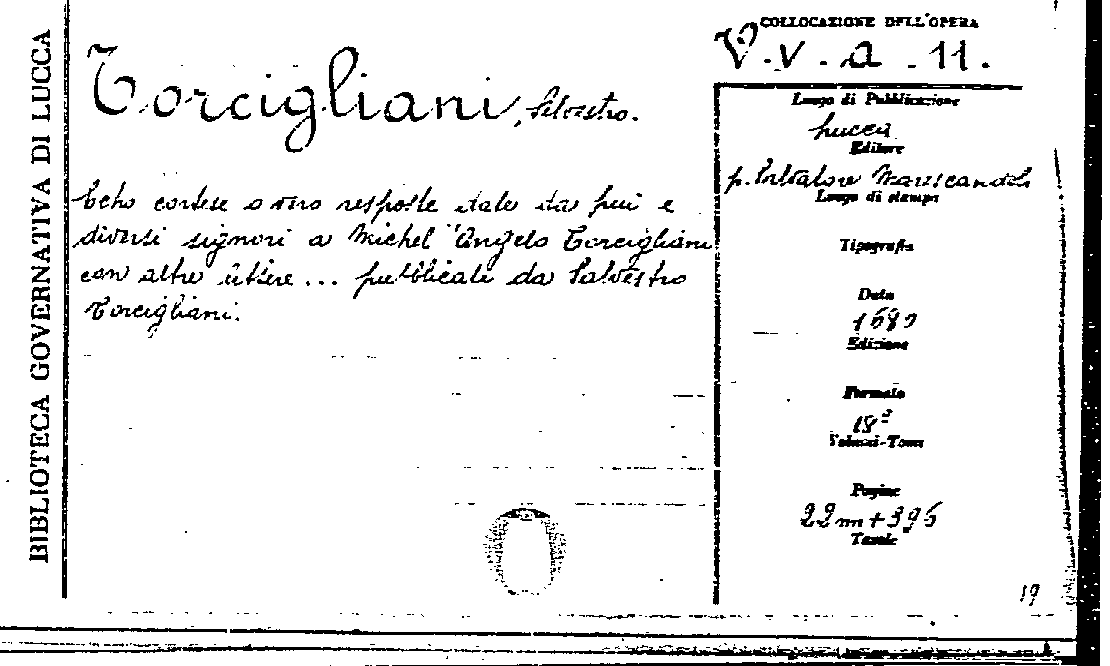 BIBLIOTECA GOVERNATIVA DI LUCCA
Torcigliani, Silvestro.
Echo cortese overo resposte date da piu e
diversi signori a Michel'Angelo Torcigliani
con altre lettere... pubblicate da Salvestro
Torcigliani.
COLLOCAZIONE DELL'OPERA
V.v.a.11.
Luogo di Pubblicazione
Lucca
Editore
p. Salvatore Marescandoli
Luogo di stampa
Tipografia
Data
Edizione
Formato
18º
Volumi-Tomi
Pagine
22m+396
Tavole
19